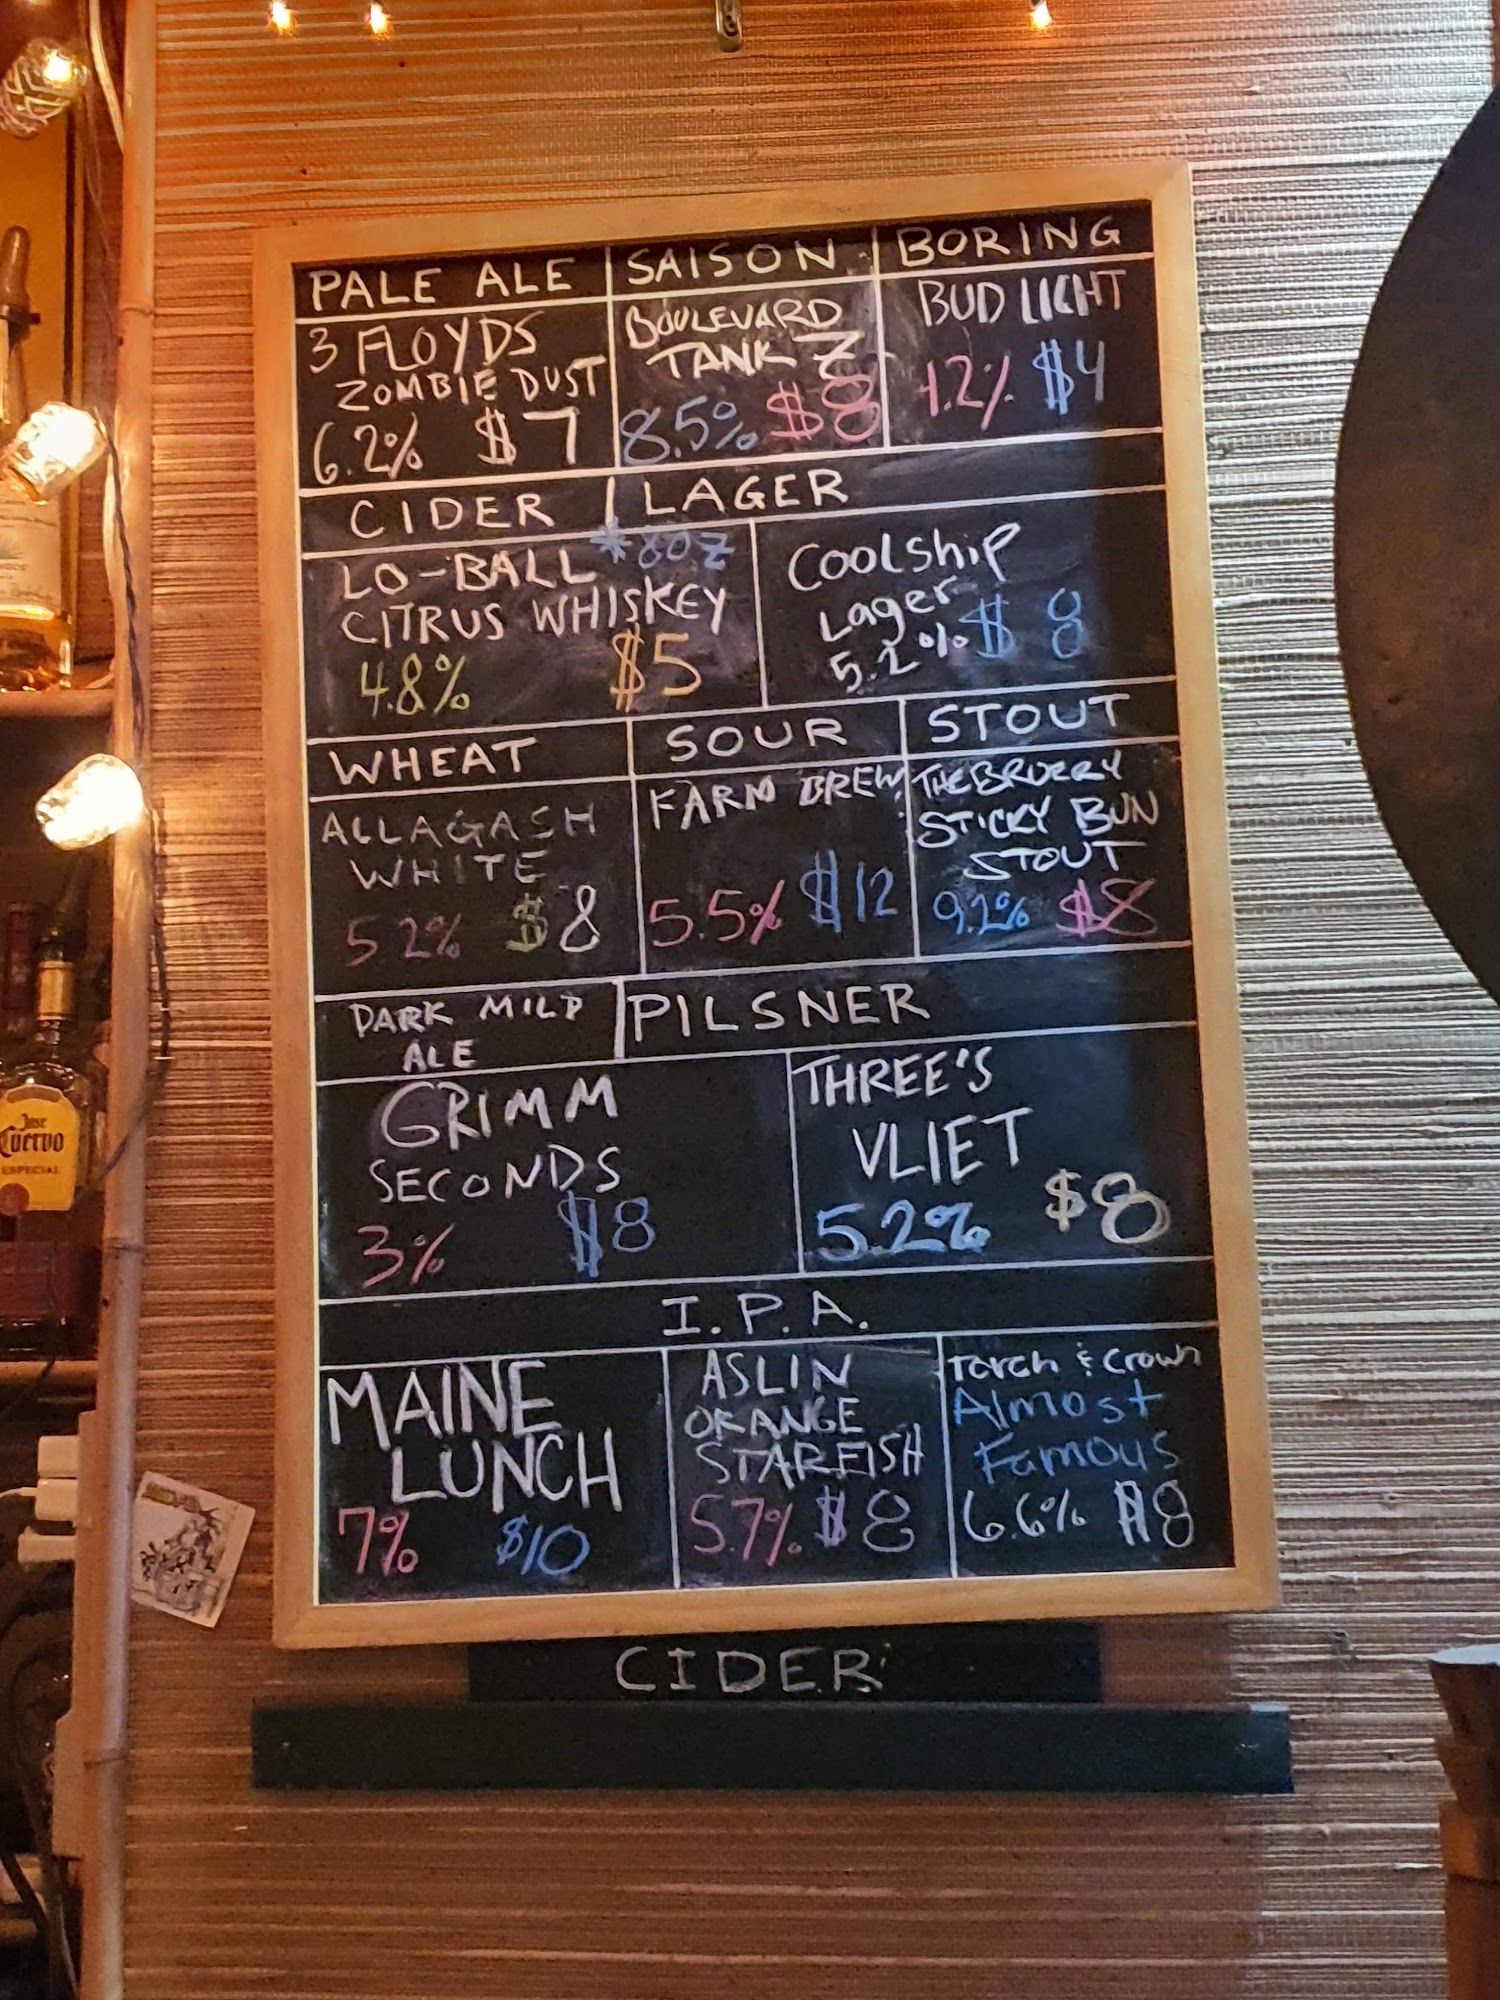 PALE ALE
SAISON
BORING
3 FLOYDS
ZOMBIE DUST
6.2% $7
BOULEVARD
TANK 7
8.5% $8
BUD LIGHT
4.2% $4
CIDER
LAGER
LO-BALL *8OZ
CITRUS WHISKEY
4.8% $5
Coolship
Lager
5.2% $8
WHEAT
SOUR
STOUT
ALLAGASH
WHITE
5.2% $8
FARM BREW
5.5% $12
THE BRUERY
STICKY BUN
STOUT
9.2% $8
DARK MILD
ALE
PILSNER
GRIMM
SECONDS
3% $8
THREE'S
VLIET
5.2% $8
I.P.A.
MAINE
LUNCH
7% $10
ASLIN
ORANGE
STARFISH
5.7% $8
Torch & Crown
Almost
Famous
6.6% $8
CIDER
Jose
Cuervo
ESPECIAL